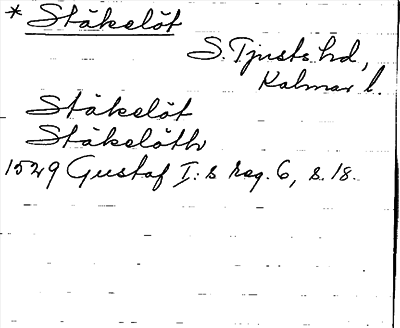 * Stäkelöt
S. Tjusts hd,
Kalmar l.
Stäkelöt
Stäkelöth
1529 Gustaf I:s reg. 6, s. 18.